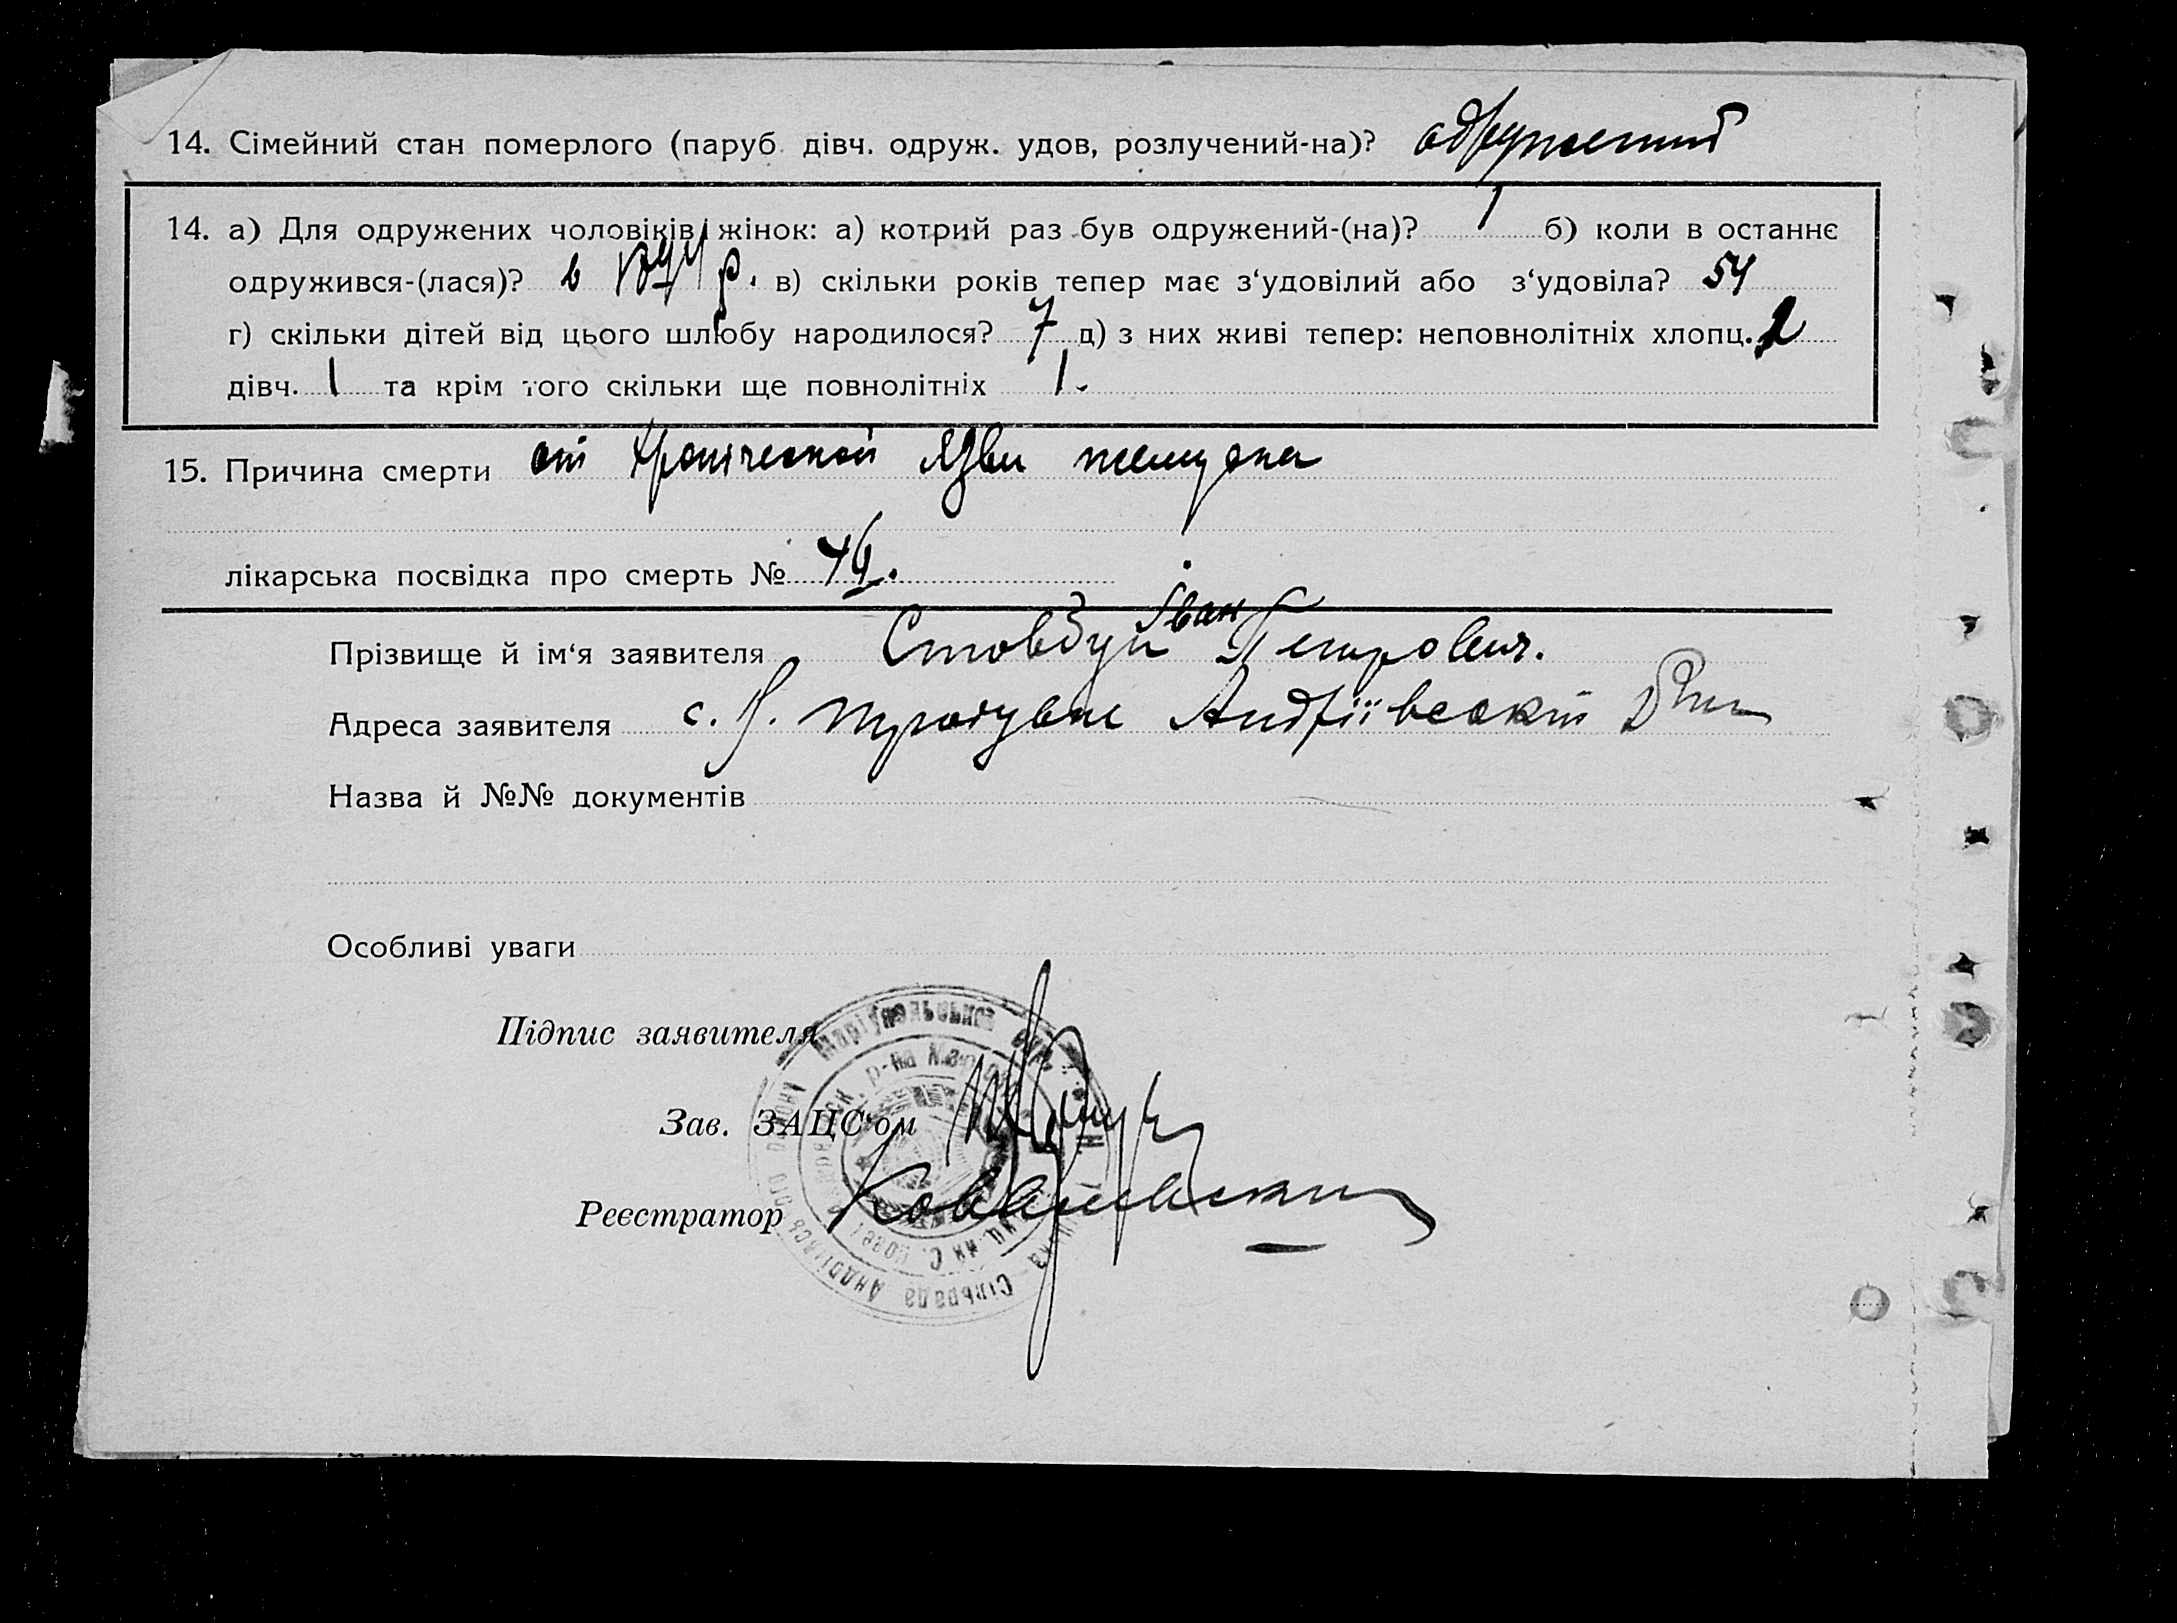 14. Сімейний стан померлого (паруб. дівч. одруж. удов, розлучений-на)? одружений
14. а) Для одружених чоловіків/жінок: а) котрий раз був одружений-(на)? 1 б) коли в останнє
одружився-(лася)? в р. в) скільки років тепер має з‘удовілий або з‘удовіла? 54
г) скільки дітей від цього шлюбу народилося? 7 д) з них живі тепер: неповнолітніх хлопц. 2
дівч. 1 та крім того скільки ще повнолітніх 1.
15. Причина смерти от хронической язви желудка
лікарська посвідка про смерть №
Іван
Прізвище й ім‘я заявителя Стовбун Петрович.
Адреса заявителя с. Андріївський
Назва й №№ документів
Особливі уваги
Підпис заявителя
Зав. ЗАЦС‘ом
Реєстратор
Сільрада